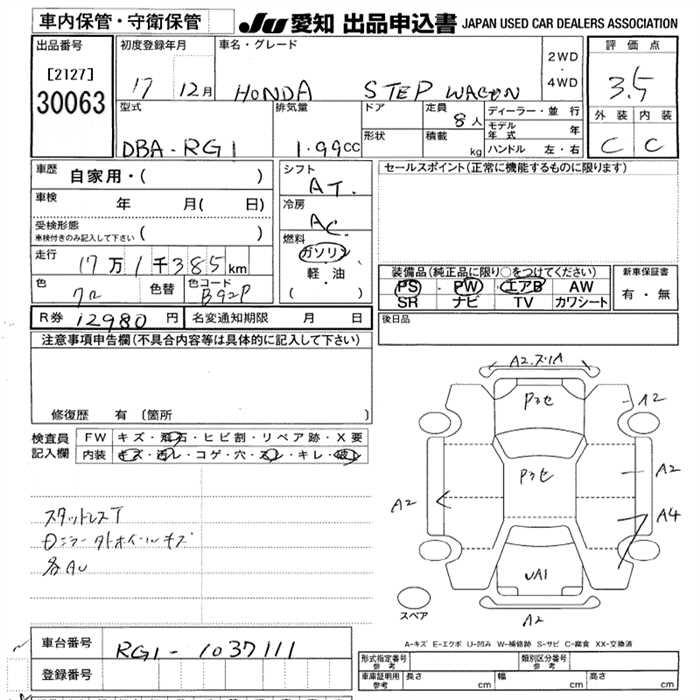 車内保管・守衛保管
JU 愛知 出品申込書 JAPAN USED CAR DEALERS ASSOCIATION
出品番号
[2127]
30063
初度登録年月
17 12月
車名・グレード
HONDA STEP WAGON
2WD
・
4WD
評価点
3.5
外装 内装
C C
型式
DBA-RG1
排気量
1.99CC
ドア
形状
定員
8人
積載
kg
ディーラー・並行
モデル年式 年
ハンドル 左・右
車歴
自家用・( )
車検
年 月( 日)
受検形態
車検付きのみ記入して下さい ( )
走行
17万1千385km
色
クロ
色替
色コード
B92P
シフト
AT.
冷房
AC
燃料
ガソリン
・
軽・油
( )
セールスポイント(正常に機能するものに限ります)
装備品(純正品に限り○をつけてください)
PS PW エアB AW
SR ナビ TV カワシート
新車保証書
有・無
R券 12980円
名変通知期限 月 日
後日品
注意事項申告欄(不具合内容等は具体的に記入して下さい)
修復歴 有〔箇所 〕
検査員
記入欄
FW キズ・飛石・ヒビ割・リペア跡・X要
内装 キズ・汚レ・コゲ・穴・スレ・キレ・破レ
スタッドレスT
各AU
A2.スリA
Pコセ
A2
Pコセ
A2
A2
A4
UA1
A2
スペア
A-キズ E-エクボ U-凹み W-補修跡 S-サビ C-腐食 XX-交換済
車台番号
RG1-1037111
登録番号
形式指定番号
参考
類別区分番号
参考
車庫証明用
参考
長さ cm
幅 cm
高さ cm